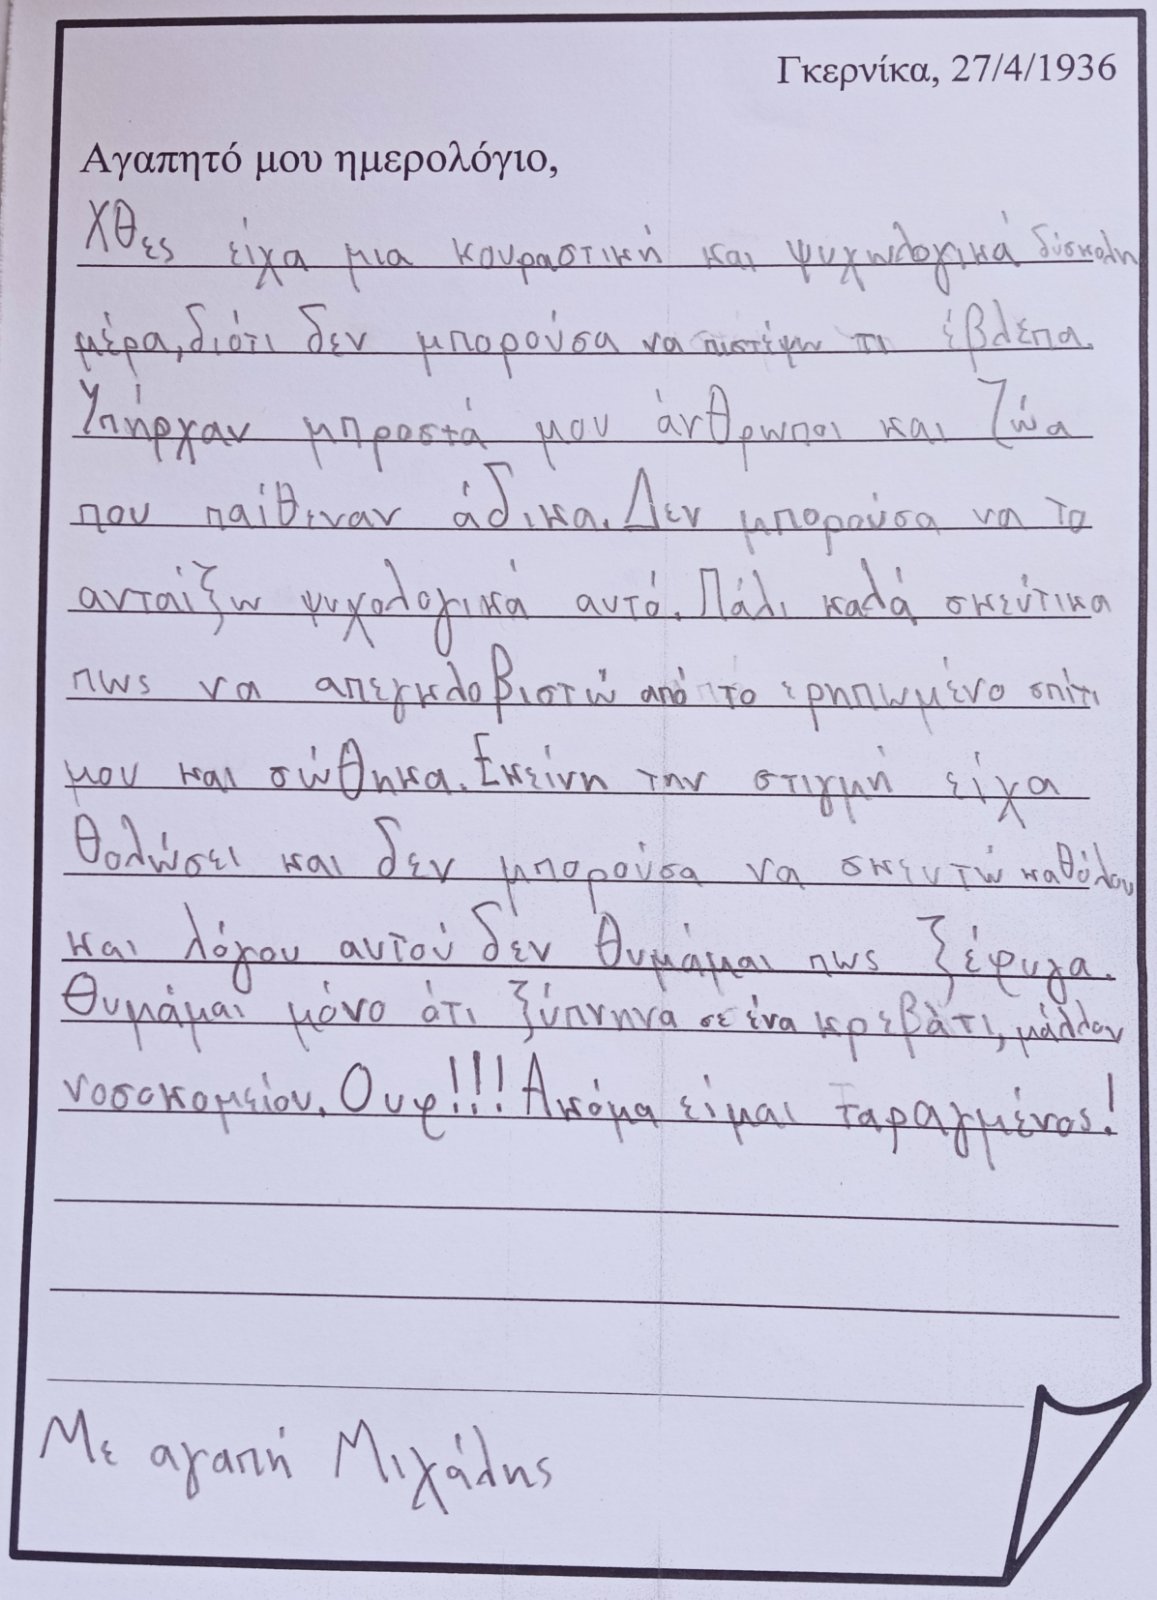 Γκερνίκα, 27/4/1936
Αγαπητό μου ημερολόγιο,
Χθες είχα μια κουραστική και ψυχωλογικά δύσκολη
μέρα, διότι δεν μπορούσα να πιστέψω τι έβλεπα.
Υπήρχαν μπροστά μου άνθρωποι και ζώα
που παίθεναν άδικα. Δεν μπορούσα να το
ανταίξω ψυχολογικά αυτό. Πάλι καλά σκεύτικα
πως να απεγκλοβιστώ από το ερηπωμένο σπίτι
μου και σώθηκα. Εκείνη την στιγμή είχα
θολώσει και δεν μπορούσα να σκευτώ καθόλου
και λόγου αυτού δέν θυμάμαι πως ξέφυγα.
Θυμάμαι μόνο ότι ξύπνηνα σε ένα κρεβάτι, μάλλον
νοσοκομείου. Ουφ!!! Ακόμα είμαι ταραγμένος!
Με αγαπή Μιχάλης